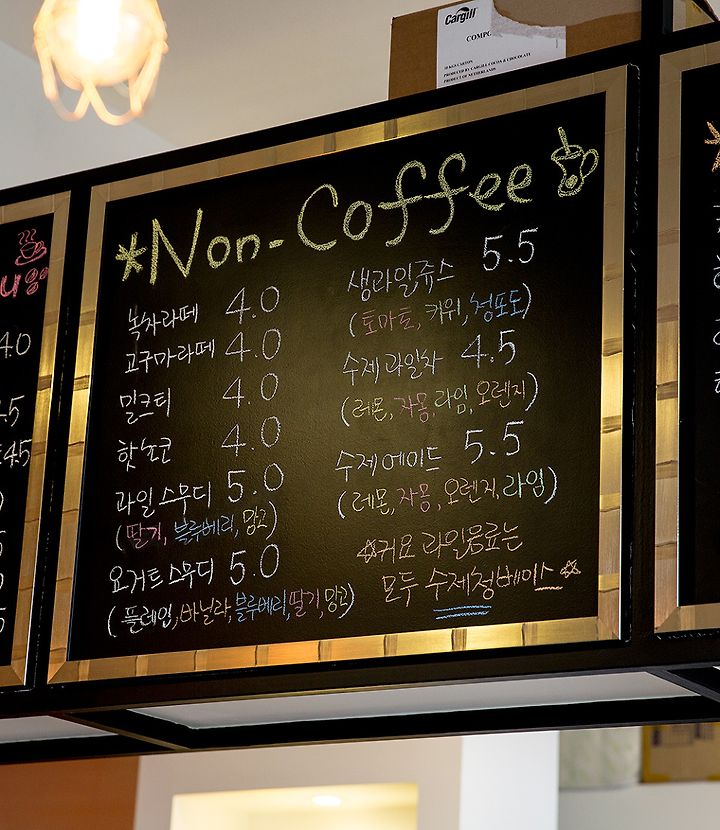 Cargill
COMPO
10 KGS CARTON
PRODUCED BY CARGILL COCOA & CHOCOLATE
PRODUCT OF NETHERLANDS
*Non-Coffee
녹차라떼 4.0
고구마라떼 4.0
밀크티 4.0
핫초코 4.0
과일스무디 5.0
(딸기, 블루베리, 망고)
요거트스무디 5.0
(플레인, 바닐라, 블루베리, 딸기, 망고)
생과일쥬스 5.5
(토마토, 키위, 청포도)
수제과일차 4.5
(레몬, 자몽, 라임, 오렌지)
수제에이드 5.5
(레몬, 자몽, 오렌지, 라임)
☆귀요 과일음료는
모두 수제청베이스☆
4.0
4.5